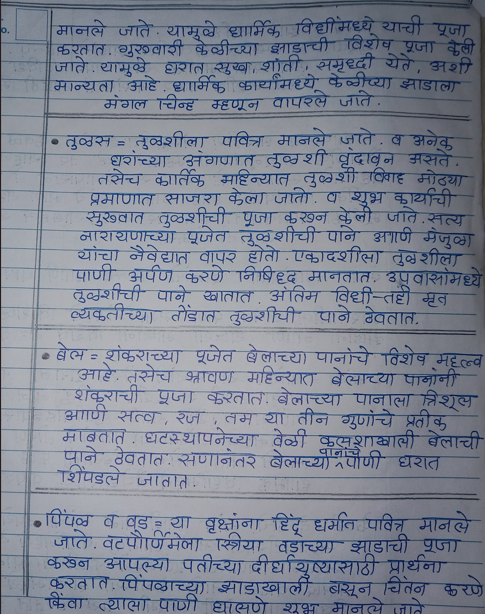 मानले जाते. यामुळे धार्मिक विधींमध्ये याची पूजा
करतात. गुरुवारी केळीच्या झाडाची विशेष पूजा केली
जाते. यामुळे घरात सुख, शांती, समृध्दी येते, अशी
मान्यता आहे. धार्मिक कार्यांमध्ये केळीच्या झाडाला
मंगल चिन्ह म्हणून वापरले जाते.
• तुळस = तुळशीला पवित्र मानले जाते. व अनेक
घरांच्या अंगणात तुळशी वृंदावन असते.
तसेच कार्तिक महिन्यात तुळशी विवाह मोठ्या
प्रमाणात साजरा केला जातो. व शुभ कार्याची
सुरुवात तुळशीची पूजा करून केली जाते. सत्य
नारायणाच्या पूजेत तुळशीची पाने आणि मंजुळा
यांचा नैवेद्यात वापर होतो. एकादशीला तुळशीला
पाणी अर्पण करणे निषिद्ध मानतात. उपवासांमध्ये
तुळशीची पाने खातात. अंतिम विधी-तही मृत
व्यक्तीच्या तोंडात तुळशीची पाने ठेवतात.
• बेल = शंकराच्या पूजेत बेलाच्या पानांचे विशेष महत्त्व
आहे. तसेच श्रावण महिन्यात बेलाच्या पानांनी
शंकराची पूजा करतात. बेलाच्या पानाला त्रिशूल
आणि सत्व, रज, तम या तीन गुणांचे प्रतीक
मानतात. घटस्थापनेच्या वेळी कलशाखाली बेलाची
पाने ठेवतात. सणानंतर बेलाच्या पानांचे पाणी घरात
शिंपडले जातात.
• पिंपळ व वड = या वृक्षांना हिंदू धर्मात पवित्र मानले
जाते. वटपौर्णिमेला स्त्रिया वडाच्या झाडाची पूजा
करून आपल्या पतीच्या दीर्घायुष्यासाठी प्रार्थना
करतात. पिंपळाच्या झाडाखाली बसून चिंतन करणे
किंवा त्याला पाणी घालणे शुभ मानले जाते